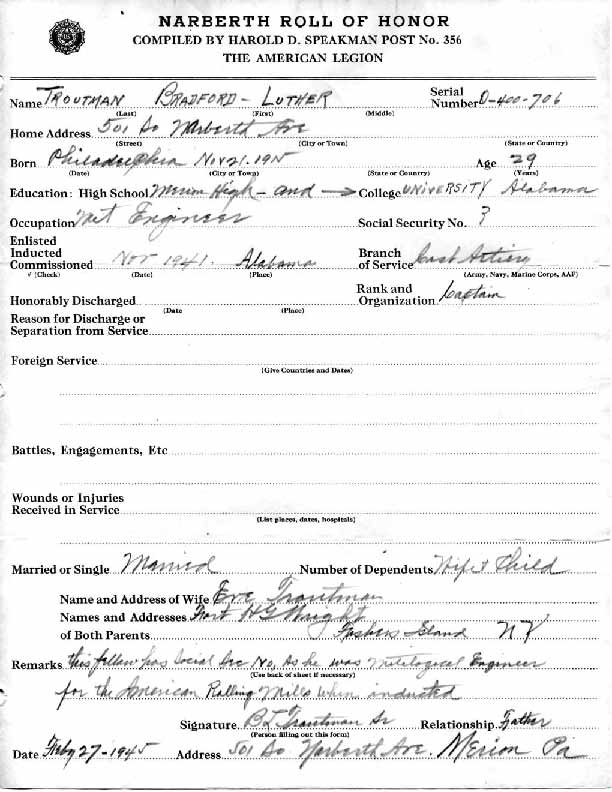 NARBERTH ROLL OF HONOR
COMPILED BY HAROLD D. SPEAKMAN POST No. 356
THE AMERICAN LEGION
Name TROUTMAN BRADFORD - LUTHER Serial Number O-400-706
(Last) (First) (Middle)
Home Address 501 So Narberth Ave
(Street) (City or Town) (State or Country)
Born Philadelphia Nov 21. 1915 Age 29
(Date) (City or Town) (State or Country) (Years)
Education: High School Merion High - and → College UNIVERSITY Alabama
Occupation Met Engineer Social Security No. ?
Enlisted
Inducted
Commissioned Nov 1941. Alabama Branch of Service Coast Artiery
# (Check) (Date) (Place) (Army, Navy, Marine Corps, AAF)
Honorably Discharged Rank and Organization Captain
(Date (Place)
Reason for Discharge or
Separation from Service
Foreign Service
(Give Countries and Dates)
Battles, Engagements, Etc
Wounds or Injuries
Received in Service
(List places, dates, hospitals)
Married or Single Married Number of Dependents Wife & Child
Name and Address of Wife Eve Troutman
Names and Addresses Fort HG Wright
of Both Parents Fishers Island NY
Remarks this fellow has Social Sec No, As he was Engineer
(Use back of sheet if necessary)
for the American Rolling Mills when inducted
Signature B L Troutman Sr Relationship Father
(Person filling out this form)
Date Feby 27-1945 Address 501 So Narberth Ave. Merion Pa